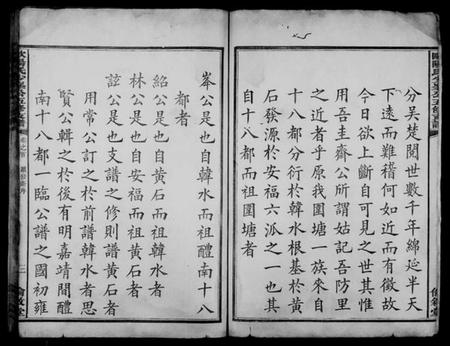 分吳楚閱世數千年綿延半天
下遠而難稽何如近而有徵故
今日欲上斷自可見之世其惟
用吾圭齋公所謂姑記吾防里
之近者乎原我圍塘一族來自
十八都分衍於韓水根基於黃
石發源於安福六派之一也其
南十八都而祖圍塘者
峯公是也自韓水而祖醴南十八
都者
紹公是也自黃石而祖韓水者
林公是也自安福而祖黃石者
諒公是也支譜之修則譜黃石者
用常公訂之於前譜韓水者思
賢公輯之於後有明嘉靖間醴
南十八都一臨公譜之國初雍